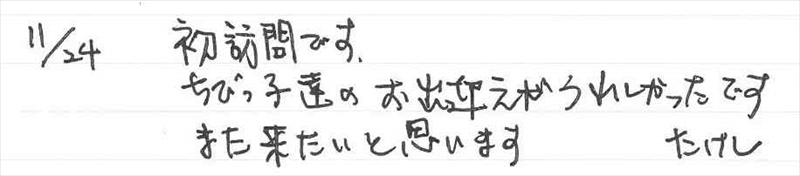 11/24 初訪問です.
ちびっ子達の お出迎えがうれしかったです
また来たいと思います たけし